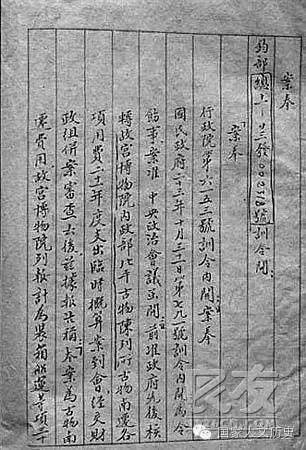 案奉
鈞部總字第 號訓令開：
「案奉
行政院第六一五三號訓令內開：案奉
國民政府二十三年十月三十一日第七九一號訓令內開：為令
飭事案准 中央政治會議函開：前准政府先後核
轉故宮博物院內政部北平古物陳列所古物南遷各
項用費二十二年度支出臨時概算案到會經交財
政組併案審查去後茲據報告稱：本案為古物南
遷費用故宮博物院列報計為裝箱船運等項十
国家人文历史